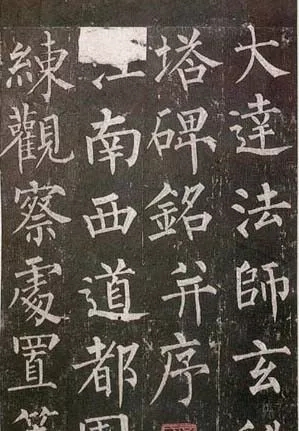 大達法師玄
塔碑銘并序
江南西道都團
練觀察處置等